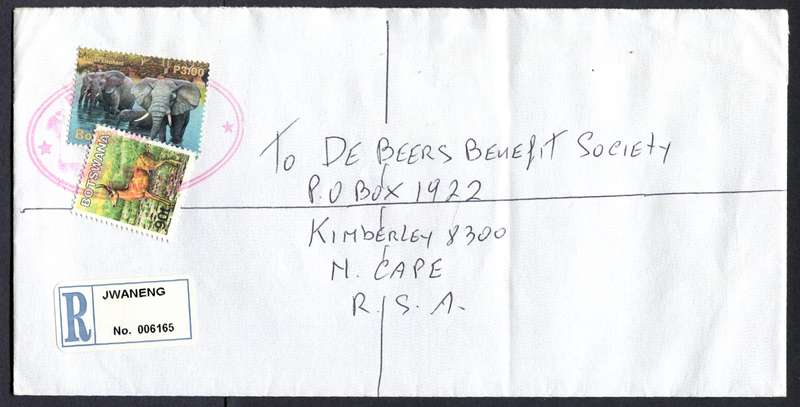 P3.00
BOTSWANA
90t
To DE BEERS BENEFIT SOCIETY
P.O BOX 1922
KIMBERLEY 8300
N. CAPE
R. S. A.
R
JWANENG
No. 006165